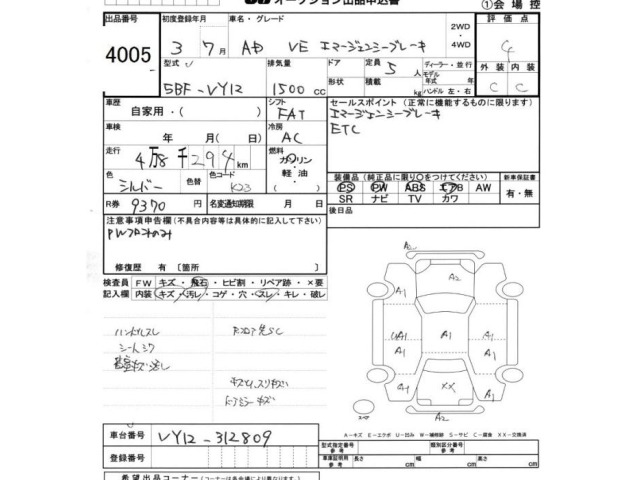 オークション出品申込書
①会場控
出品番号 初度登録年月 車名・グレード 2WD ・ 4WD 評価点
4005 3年7月 AD VE エマージェンシーブレーキ 4
型式 排気量 ドア 定員 ディーラー・並行 外装 内装
5BF-VY12 1500cc 形状 5人 モデル年式 年式 C C
積載 kg ハンドル 左・右
車歴 自家用・( ) シフト FAT セールスポイント(正常に機能するものに限ります)
車検 年 月( 日) 冷房 AC エマージェンシーブレーキ
ETC
走行 4万8千294km 燃料 ガソリン・軽油・
色 シルバー 色替 色コード K23 装備品(純正品に限り○をつけてください) 新車保証書
PS PW ABS エアB AW 有・無
R券 9370円 名変通知期限 月 日 SR ナビ TV カワ
注意事項申告欄(不具合内容等は具体的に記入して下さい) 後日品
PWフロントのみ
修復歴 有〔箇所 〕
検査員記入欄 FW キズ・飛石・ヒビ割・リペア跡・×要
内装 キズ・汚レ・コゲ・穴・スレ・キレ・破レ
ハンドルスレ
シートシワ
A2
A2
A1 A1
UA1 A1 A1
A1 A1
A1 XX A1
A2
A-キズ E-エクボ U-凹み W-補修跡 S-サビ C-腐食 XX-交換済
車台番号 VY12-312809
登録番号
型式指定番号 参考 類別区分番号 参考
車庫証明用 参考 長さ cm 幅 cm 高さ cm
希望出品コーナー(会場により異なります)